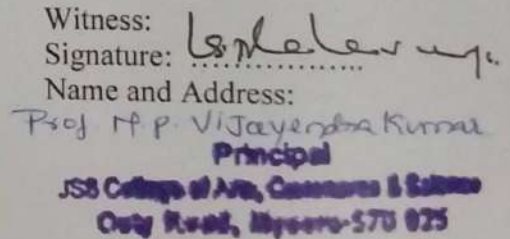 Witness:
Signature: ..................
Name and Address:
Prof. M. P. Vijayendra Kumar
Principal
JSS College of Arts, Commerce & Science
Ooty Road, Mysore-570 025